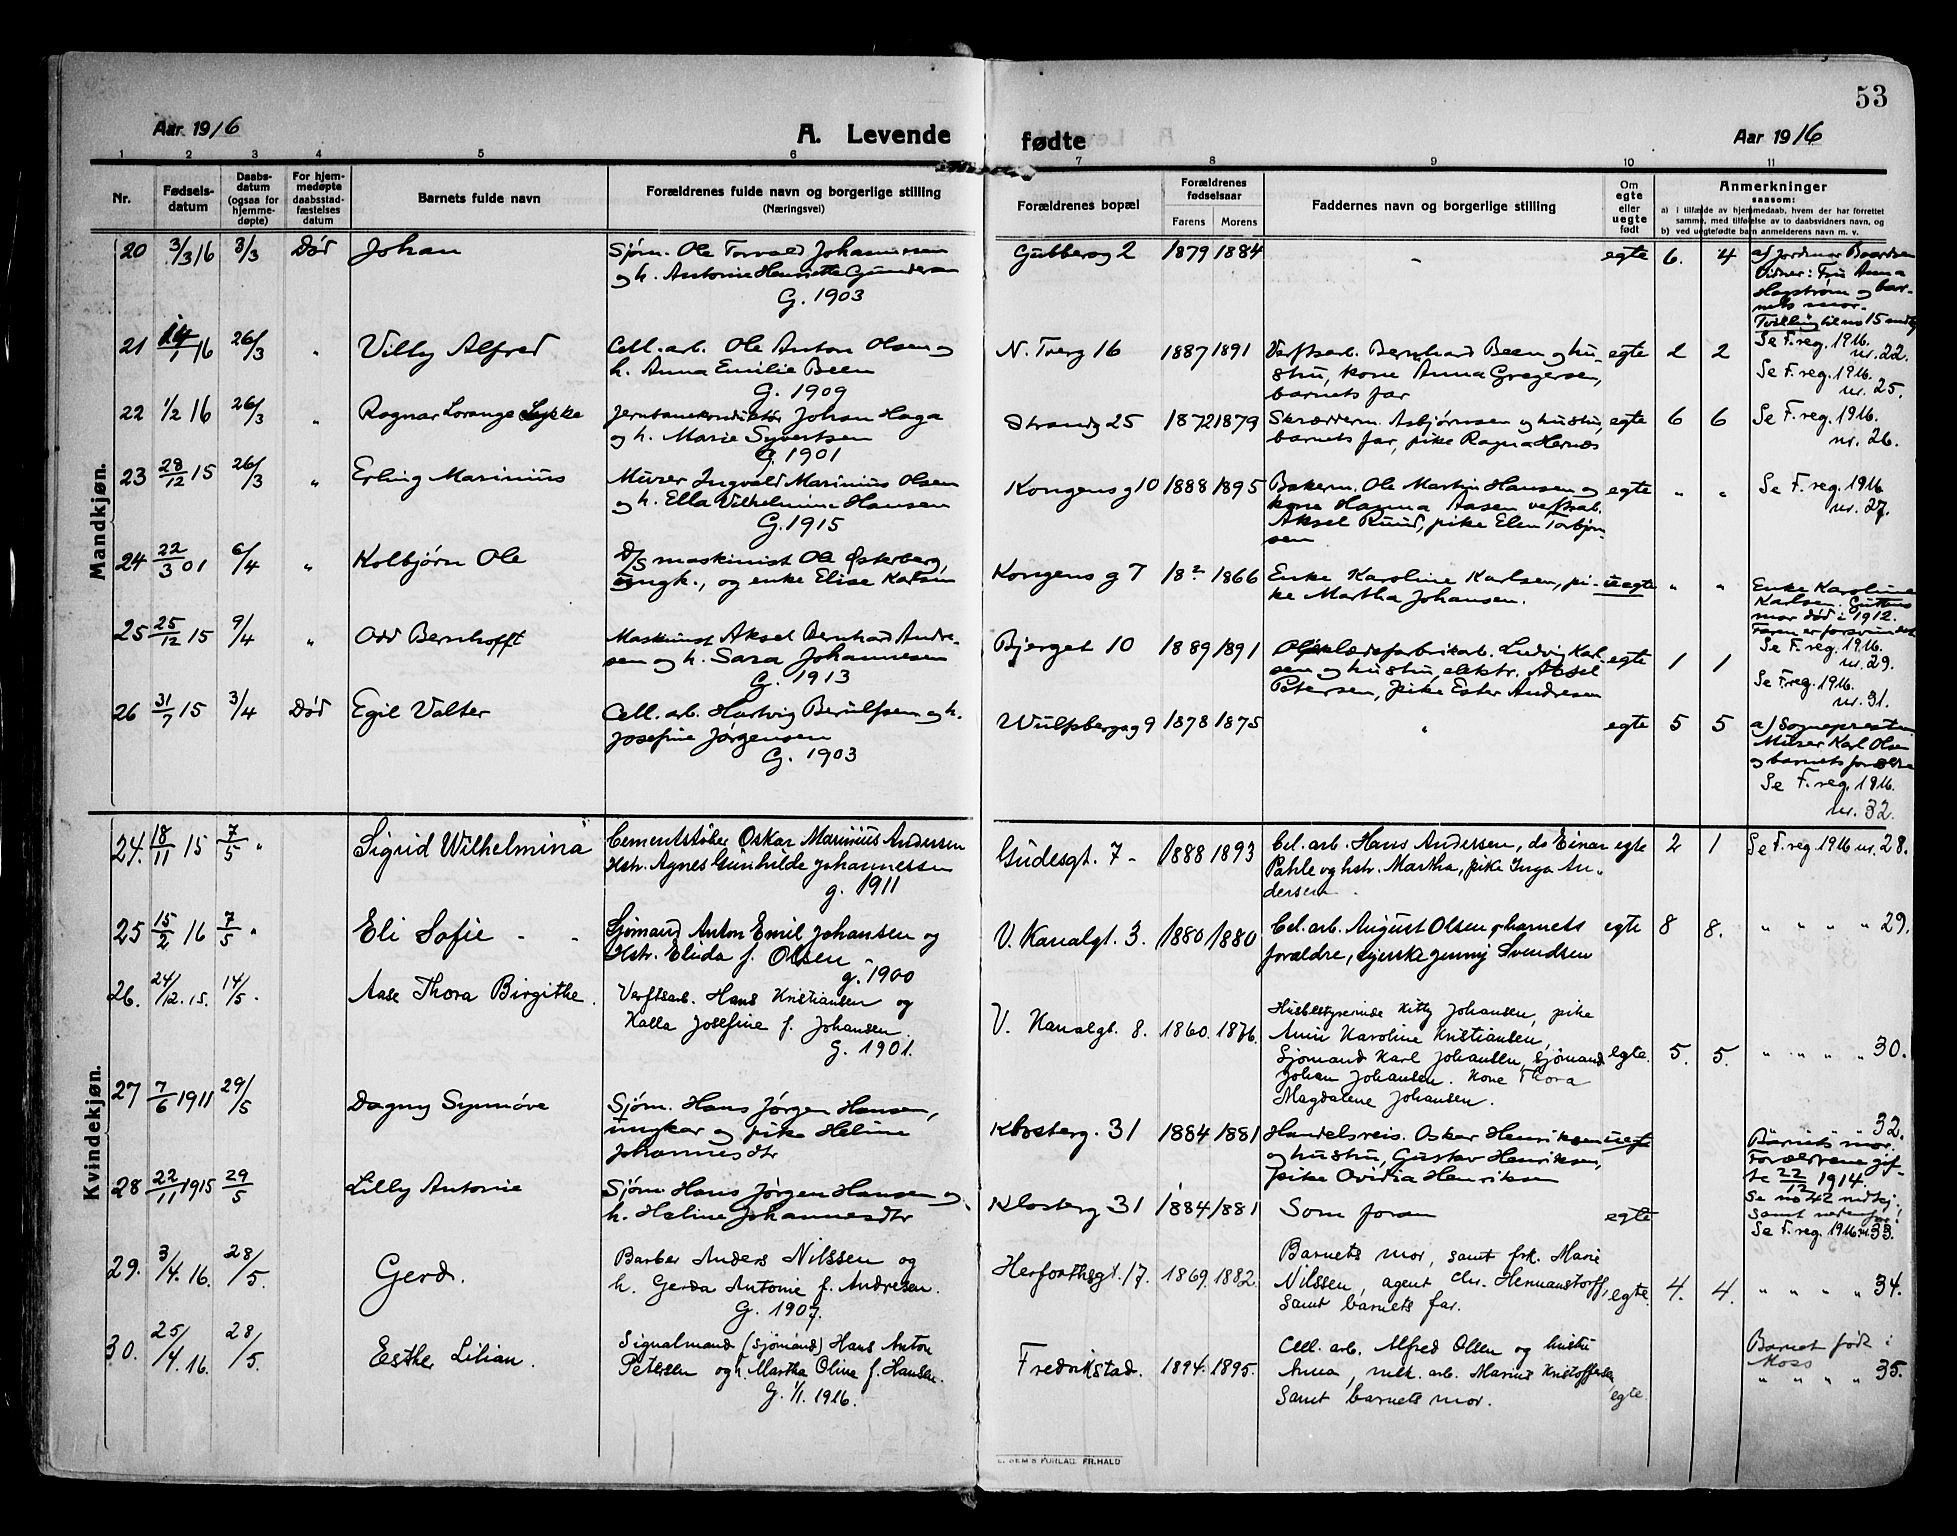 53
Aar 1916
A. Levende
fødte
Aar 1916
1 2 3 4 5 6 7 8 9 10 11
Nr.
Fødsels-
datum
Daabs-
datum
(ogsaa for
hjemme-
døpte)
For hjem-
medøpte
daabsstad-
fæstelses
datum
Barnets fulde navn
Forældrenes fulde navn og borgerlige stilling
(Næringsvei)
Forældrenes bopæl
Forældrenes
fødselsaar
Farens Morens
Faddernes navn og borgerlige stilling
Om
egte
eller
uegte
født
Anmerkninger
saasom:
a) i tilfælde av hjemmedaab, hvem der har forrettet
samme, med tilføielse av to daabsvidners navn, og
b) ved uegtefødte barn anmelderens navn m. v.
Mandkjøn.
20 3/3 16 3/3 Død Johan
Sjøm. Ole Torvald Johannessen
og h. Antonie Henriette Gundersen
G. 1903
Gubbeg 2 1879 1884 egte 6. 4
a) Jordmor Baardsen
Vidner: Fru Anna
Hagstrøm og bar-
nets mor.
Se F. reg. 1916.
nr. 22.
21 14/1 16 26/3 " Villy Alfred
Cell. arb. Ole Anton Olsen og
h. Anna Emilie Been
G. 1909
N. Tverg 16 1887 1891
Verftsarb. Bernhard Been og hu-
stru, kone Anna Gregersen,
barnets far
egte 2 2
Se F. reg. 1916.
nr. 25.
22 1/2 16 26/3 " Ragnar Lorange Lykke
Jernbanekonduktør Johan Haga
og h. Marie Syvertsen
G. 1901
Strandg 25 1872 1879
Skræderm. Asbjørnsen og hustru,
barnets far, pike Ragna Hernæs
egte 6 6
Se F. reg. 1916.
nr. 26.
23 28/12 15 26/3 " Erling Marinius
Murer Ingvald Marinius Olsen
og h. Ella Vilhelmine Hansen
G. 1915
Kongens g 10 1888 1895
Bakerm. Ole Martin Hansen og
kone Hanna Aasen verftsab.
Aksel Ruud, pike Elen Torbjørn-
sen
egte " "
Se F. reg. 1916
nr. 27.
24 22/3 01 6/4 " Kolbjørn Ole
D/S maskinist Ole Østerberg,
ungk., og enke Elise Karlsen
Kongens g 7 18? 1866
Enke Karoline Karlsen, pi-
ke Martha Johansen.
uegte " "
Enke Karoline
Karlsen. Guttens
mor død i 1912.
Faren er forsvundet
Se F. reg. 1916.
nr. 29.
25 25/12 15 9/4 " Odd Bernhofft
Maskinist Aksel Bernhard Andre-
sen og h. Sara Johannesen
G. 1913
Bjerget 10 1889 1891
Oljeklædefabrikarb. Ludvig Karl-
sen og hustru, elektr. Aksel
Petersen, pike Ester Andresen
egte 1 1
Se F. reg. 1916.
nr. 31.
26 31/7 15 3/4 Død Egil Valter
Cell. arb. Hartvig Berulfsen og h.
Josefine Jørgensen
G. 1903
Wulfsbergsg 9 1878 1875 " egte 5 5
a) Sognepresten
Murer Karl Olsen
og barnets forældre
Se F. reg. 1916.
nr. 32.
Kvindekjøn.
24. 18/11 15 7/5 " Sigrid Wilhelmina
Cementstøber Oskar Marinius Andersen
Hstr. Agnes Gunhilde Johannessen
g. 1911
Gudesgt. 7 - 1888 1893
Cel. arb. Hans Andersen, do Einar
Pahle og hstr. Martha, pike Inga An-
dersen
egte 2 1 Se F. reg 1916 nr. 28.
25 15/2 16 7/5 " Eli Sofie - -
Sjømand Anton Emil Johansen og
Hstr. Elida f. Olsen
g. 1900
V. Kanalgt. 3. 1880 1880
Cel. arb. August Olsen & barnets
forældre, syerske Jenny Svendsen
egte 8 8. " " " " 29.
26. 24/12. 15. 14/5. Aase Thora Birgithe.
Verftsarb. Hans Kristiansen og
Kalla Josefine f. Johansen.
G. 1901.
V. Kanalgt. 8. 1860. 1876.
Husbestyrerinde Kitty Johansen, pike
Anni Karoline Kristiansen,
Sjømand Karl Johansen, sjømand
Johan Johansen. Kone Thora
Magdalene Johansen.
egte. 5. 5. " " " " 30.
27 7/6 1911 29/5 Dagny Synnøve
Sjøm. Hans Jørgen Hansen,
ungkar og pike Heline
Johannesdtr
Klosterg. 31 1884 1881
Handelsreis. Oskar Henriksen
og hustru, Gustav Henriksen,
pike Ovidia Henriksen
uegte
32.
Barnets mor.
Forældrene gif-
te 22/12 1914.
28 22/11 1915 29/5 Lilly Antonie
Sjøm. Hans Jørgen Hansen og
h. Heline Johannesdtr
Klosterg 31 1884 1881 Som foran egte
Se F. reg. 1916 nr. 33.
29. 3/4. 16. 28/5. Gerd.
Barber Anders Nilssen og
h. Gerda Antonie f. Andresen.
G. 1907.
Herføthsgt. 17. 1869. 1882.
Barnets mor, samt frk. Marie
Nilssen, agent Chr. Hermanstorff,
samt barnets far.
egte. 4. 4. " " " " 34.
30. 25/4. 16. 28/5. Esther Lilian.
Signalmand (sjømand) Hans Anton
Petersen og h. Martha Oline f. Hansen.
G. 1/1. 1916.
Fredrikstad. 1894. 1895.
Cell. arb. Alfred Olsen og hustru
Anna, mek. arb. Marius Kristoffersen,
samt barnets mor.
egte.
Barnet født i
Moss
" " " " 35.
E. SEM'S FORLAG. FR.HALD